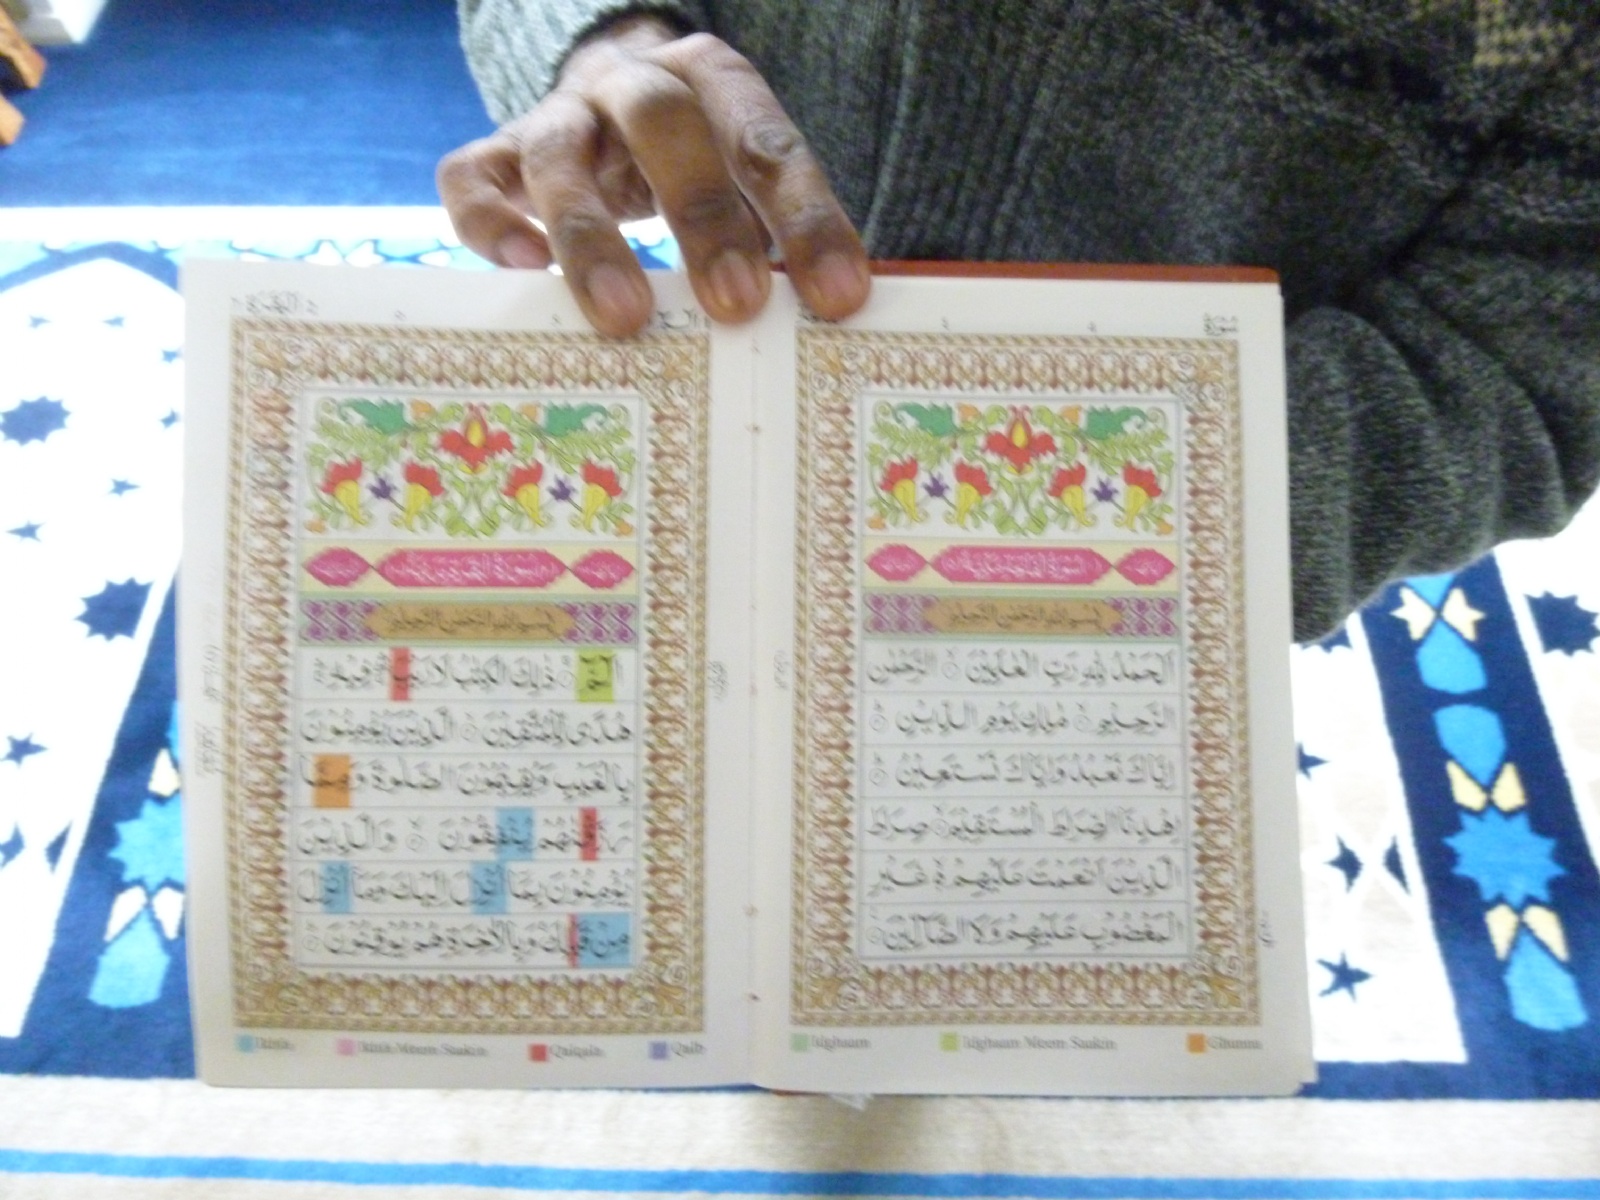 سُورَةُ
سُورَةُ الْفَاتِحَةِ مَكِّيَّةٌ
بِسْمِ اللهِ الرَّحْمٰنِ الرَّحِيْمِ
اَلْحَمْدُ لِلّٰهِ رَبِّ الْعٰلَمِيْنَ ۙ الرَّحْمٰنِ
الرَّحِيْمِ ۙ مٰلِكِ يَوْمِ الدِّيْنِ ۗ
اِيَّاكَ نَعْبُدُ وَاِيَّاكَ نَسْتَعِيْنُ ۗ
اِهْدِنَا الصِّرَاطَ الْمُسْتَقِيْمَ ۙ صِرَاطَ
الَّذِيْنَ اَنْعَمْتَ عَلَيْهِمْ ۙ غَيْرِ
الْمَغْضُوْبِ عَلَيْهِمْ وَلَا الضَّآلِّيْنَ
Idghaam Idghaam Meem Saakin Ghunna
البقرة ٢
سُورَةُ الْبَقَرَةِ مَدَنِيَّةٌ
بِسْمِ اللهِ الرَّحْمٰنِ الرَّحِيْمِ
الٓمّٓ ۚ ذٰلِكَ الْكِتٰبُ لَا رَيْبَ ۛ فِيْهِ ۛ
هُدًى لِّلْمُتَّقِيْنَ ۙ الَّذِيْنَ يُؤْمِنُوْنَ
بِالْغَيْبِ وَيُقِيْمُوْنَ الصَّلٰوةَ وَمِمَّا
رَزَقْنٰهُمْ يُنْفِقُوْنَ ۙ وَالَّذِيْنَ
يُؤْمِنُوْنَ بِمَآ اُنْزِلَ اِلَيْكَ وَمَآ اُنْزِلَ
مِنْ قَبْلِكَ وَبِالْاٰخِرَةِ هُمْ يُوْقِنُوْنَ
Ikhfa Ikhfa Meem Saakin Qalqala Qalb